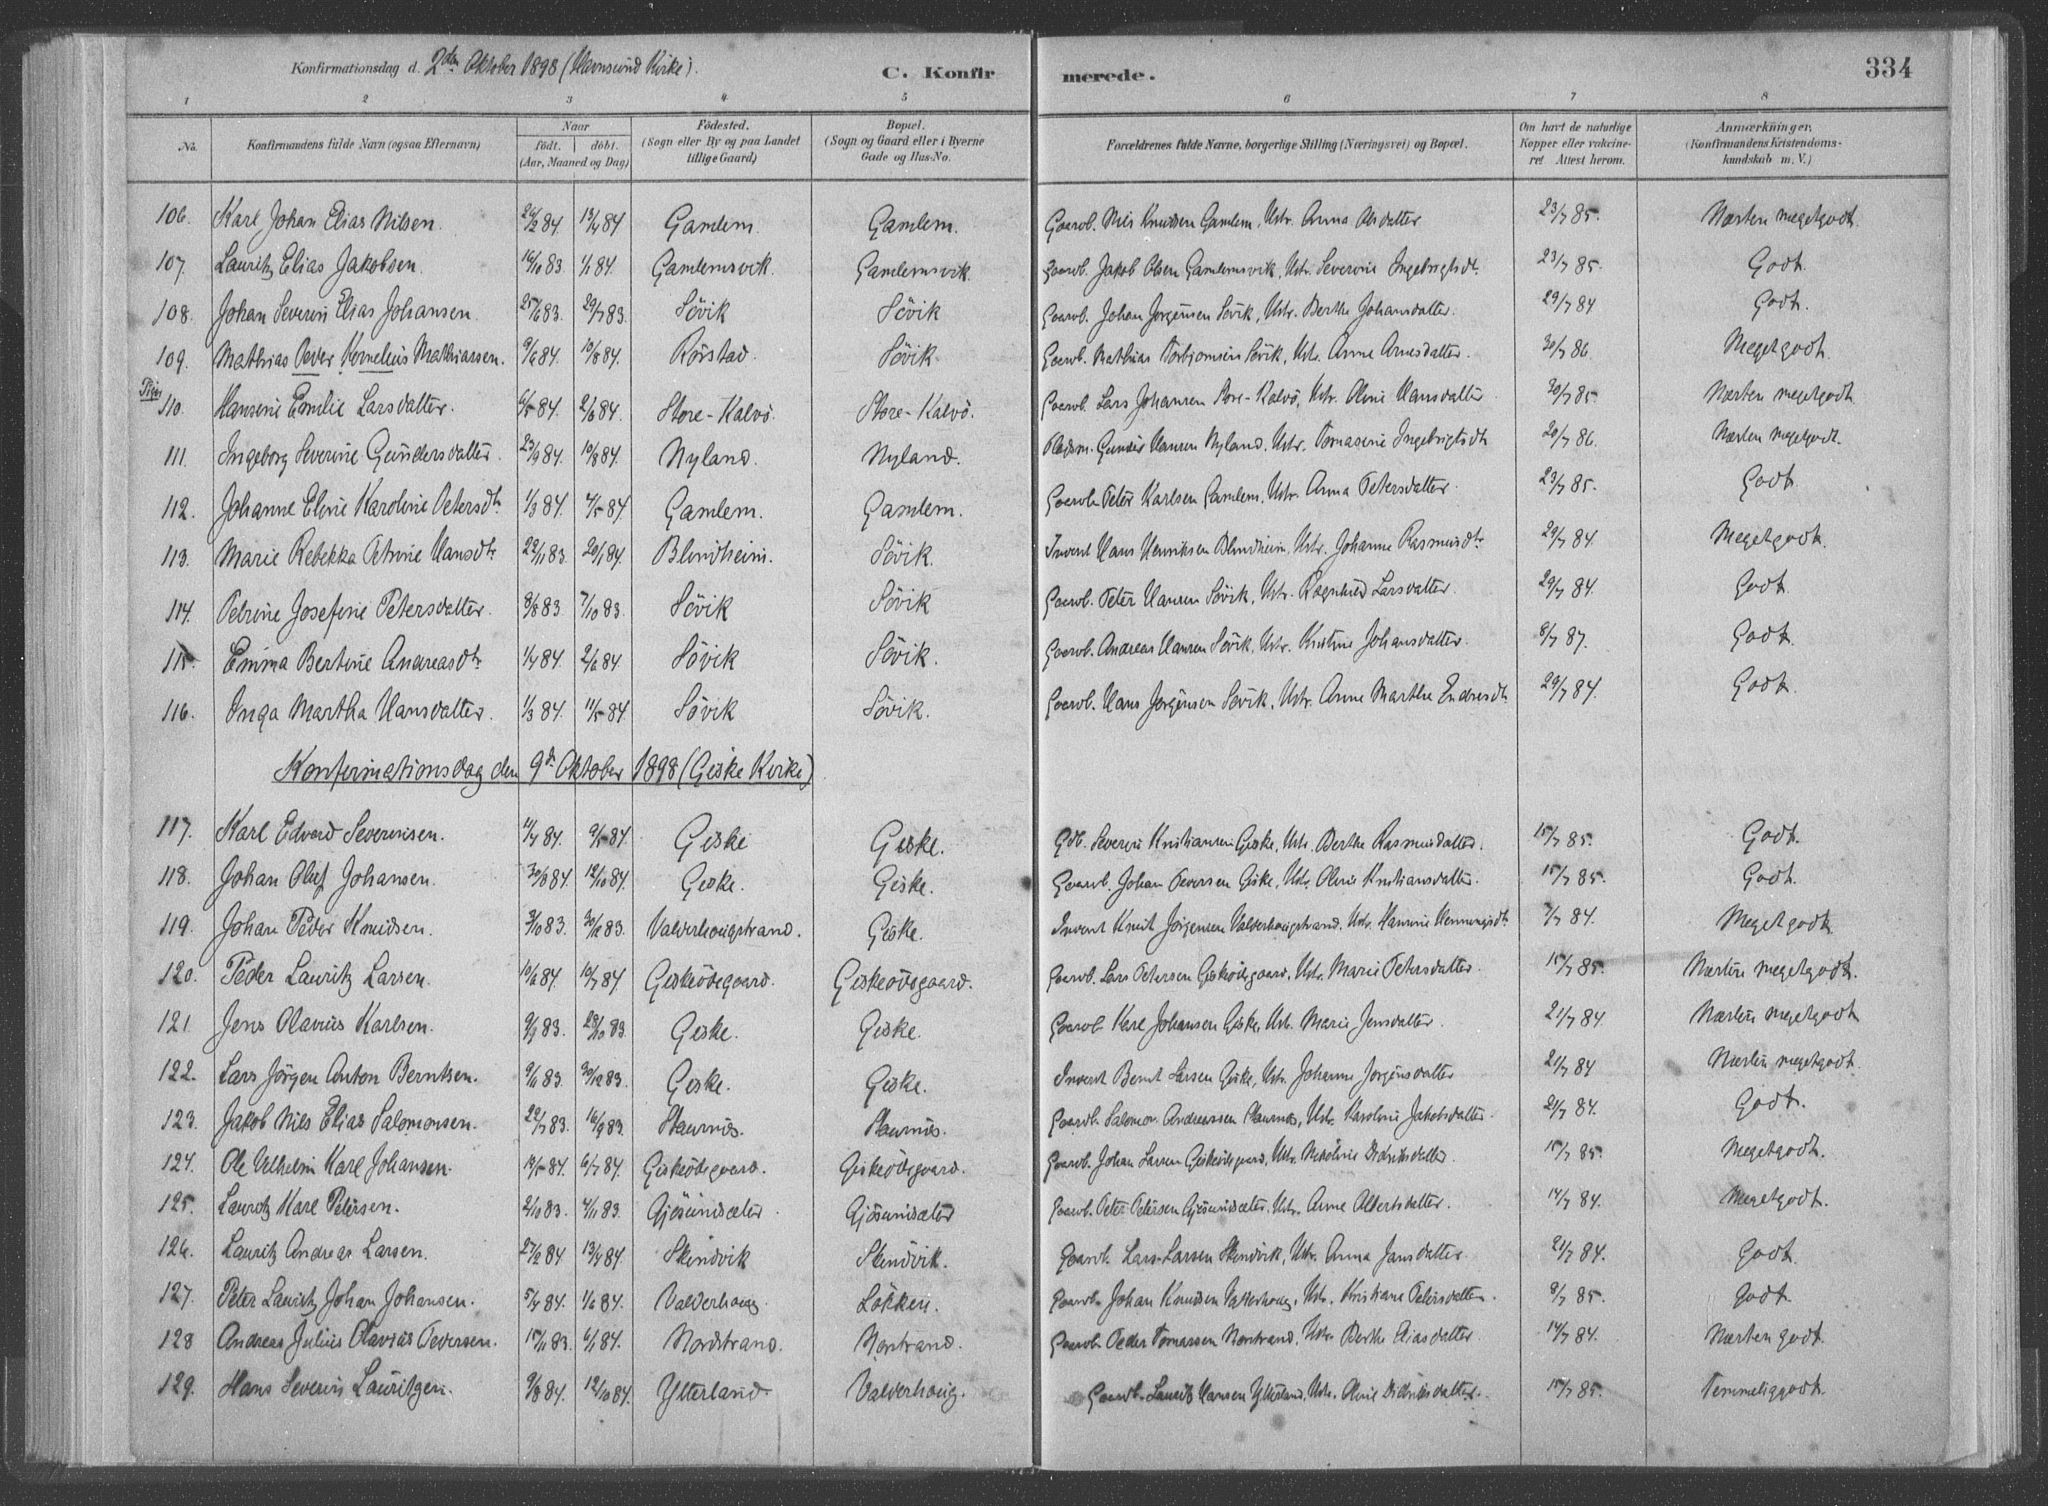 Konfirmationsdag d. 2den Oktober 1898 (Havnsund Kirke). C. Konfirmerede. 334
1 2 3 4 5 6 7 8
No. Konfirmandens fulde Navn (ogsaa Efternavn) Naar født. døbt. (Aar, Maaned og Dag) Fødested. (Sogn eller By og paa Landet tillige Gaard) Bopæl. (Sogn og Gaard eller i Byerne Gade og Hus-No. Forældrenes fulde Navne, borgerlige Stilling (Næringsvei) og Bopæl. Om havt de naturlige Kopper eller vakcineret Attest herom. Anmærkninger. (Konfirmandens Kristendomskundskab m. V.)
106. Karl Johan Elias Nilsen. 26/2 84. 13/4 84 Gamlem. Gamlem. Gaarb. Nils Knudsen Gamlem, Ustr. Anna Olsdatter 23/7 85. Næsten megetgodt.
107. Lauritz Elias Jakobsen. 16/10 83. 1/1 84. Gamlemsvik. Gamlemsvik. Gaarb. Jakob Olsen Gamlemsvik, Ustr. Severine Ingebrigtsdtr. 23/7 85. Godt.
108. Johan Severin Elias Johansen. 25/6 83. 29/7 83. Sövik Sövik Gaarb. Johan Jørgensen Sövik, Ustr. Berthe Johansdatter. 29/7 84 Godt.
109. Mathias Peder Kornelius Mathiassen. 9/6 84. 10/8 84. Rörstad. Sövik. Gaarb. Mathias Torbjørnsen Sövik, Ustr. Anne Arnesdatter. 30/7 86 Megetgodt.
Piger
110. Hansine Emilie Larsdatter. 6/5 84. 2/6 84. Store-Kalvö. Store-Kalvö. Gaarb. Lars Johansen Store-Kalvö, Ustr. Oline Hansdatter. 30/7 85. Næsten megetgodt.
111. Ingeborg Severine Gundersdatter. 23/9 84. 10/8 84. Nyland. Nyland. Gunder Hansen Nyland, Ustr. Tomasine Ingebrigtsdtr. 20/7 86. Næsten megetgodt.
112. Johanne Eline Karoline Petersdtr. 1/3 84. 4/5 84. Gamlem. Gamlem. Gaarb. Peter Karlsen Gamlem, Ustr. Anna Petersdatter. 23/7 85. Godt.
113. Marie Rebekka Petrine Hansdtr. 22/11 83. 20/1 84. Blindheim. Sövik. Inderst Hans Henriksen Blindheim, Ustr. Johanne Rasmusdtr. 29/7 84. Megetgodt.
114. Petrine Josefine Petersdatter. 8/8 83. 7/10 83. Sövik Sövik Gaarb. Peter Hansen Sövik, Ustr. Ragnhild Larsdatter. 29/7 84. Godt.
115. Emma Bertine Andreasdtr. 1/4 84. 2/6 84. Sövik Sövik. Gaarb. Andreas Hansen Sövik, Ustr. Kristine Johansdatter. 8/7 87. Godt.
116. Inga Martha Hansdatter. 1/3 84. 11/5 84 Sövik Sövik. Gaarb. Hans Jørgensen Sövik, Ustr. Anne Marthe Endresdtr. 29/7 84. Godt.
Konfirmationsdag den 9de Oktober 1898 (Giske Kirke)
117. Karl Edvard Severinsen. 11/4 84. 9/5 84 Giske Giske. Gdb. Severin Kristiansen Giske, Ustr. Berthe Rasmusdatter. 15/7 85. Godt.
118. Johan Oluf Johansen. 30/8 84. 12/10 84. Giske. Giske. Gaarb. Johan Iversen Giske, Ustr. Oline Kristiansdatter. 15/7 85. Godt.
119. Johan Peder Knudsen. 3/10 83. 30/12 83. Valderhougstrand. Giske. Inderst Knut Jørgensen Valderhougstrand, Ustr. Hansine Henningsdtr. 1/7 84. Megetgodt.
120. Peder Lauritz Larsen. 10/6 84. 10/7 84. Giskeödegaard. Giskeödegaard. Gaarb. Lars Petersen Giskeödegaard, Ustr. Marie Petersdatter. 15/7 85. Næsten megetgodt.
121. Jens Olavius Karlsen. 9/9 83. 28/10 83. Giske. Giske. Gaarb. Karl Johansen Giske, Ustr. Marie Jensdatter. 21/7 84. Næsten megetgodt
122. Lars Jörgen Anton Berntsen. 9/11 83. 30/12 83. Giske. Giske. Inderst Bernt Larsen Giske, Ustr. Johanne Jørgensdatter 21/7 84 Næsten megetgodt.
123. Jakob Nils Elias Salomonsen. 22/7 83. 16/9 83. Staurnæs. Staurnæs. Gaardb. Salomon Andreassen Staurnæs, Ustr. Karoline Jakobsdatter. 21/7 84. Godt.
124. Ole Vilhelm Karl Johansen. 19/5 84. 6/7 84. Giskeödegaard. Giskeödegaard. Gaarb. Johan Larsen Giskeödegaard, Ustr. Nikoline Didriksdatter. 15/7 85. Megetgodt.
125. Lauritz Karl Petersen. 2/10 83. 4/11 83. Gjösundsæter. Gjösundsæter Gaarb. Peter Petersen Gjösundsæter, Ustr. Anne Albertsdatter. 14/7 84. Megetgodt.
126. Lauritz Andreas Larsen. 27/2 84 13/4 84. Skindvik Skindvik. Gaarb. Lars Larsen Skindvik, Ustr. Anna Jansdatter. 21/7 84. Godt.
127. Peter Lauritz Johan Johansen. 5/4 84. 1/6 84. Valderhoug. Lökken. Gaarb. Johan Knudsen Valderhoug, Ustr. Kristiane Petersdatter. 8/7 85. Godt.
128 Andreas Julius Olavius Pedersen. 15/11 83. 6/1 84. Nordstrand. Nordstrand. Gaarb. Peder Tomassen Nordstrand, Ustr. Berthe Eliasdatter. 14/7 84. Næsten godt.
129. Hans Severin Lauritzen. 9/8 84. 12/10 84. Ytterland. Valderhoug. Gaarb. Lauritz Hansen Ytterland, Ustr. Oline Didriksdatter. 15/7 85. Temmeliggodt.